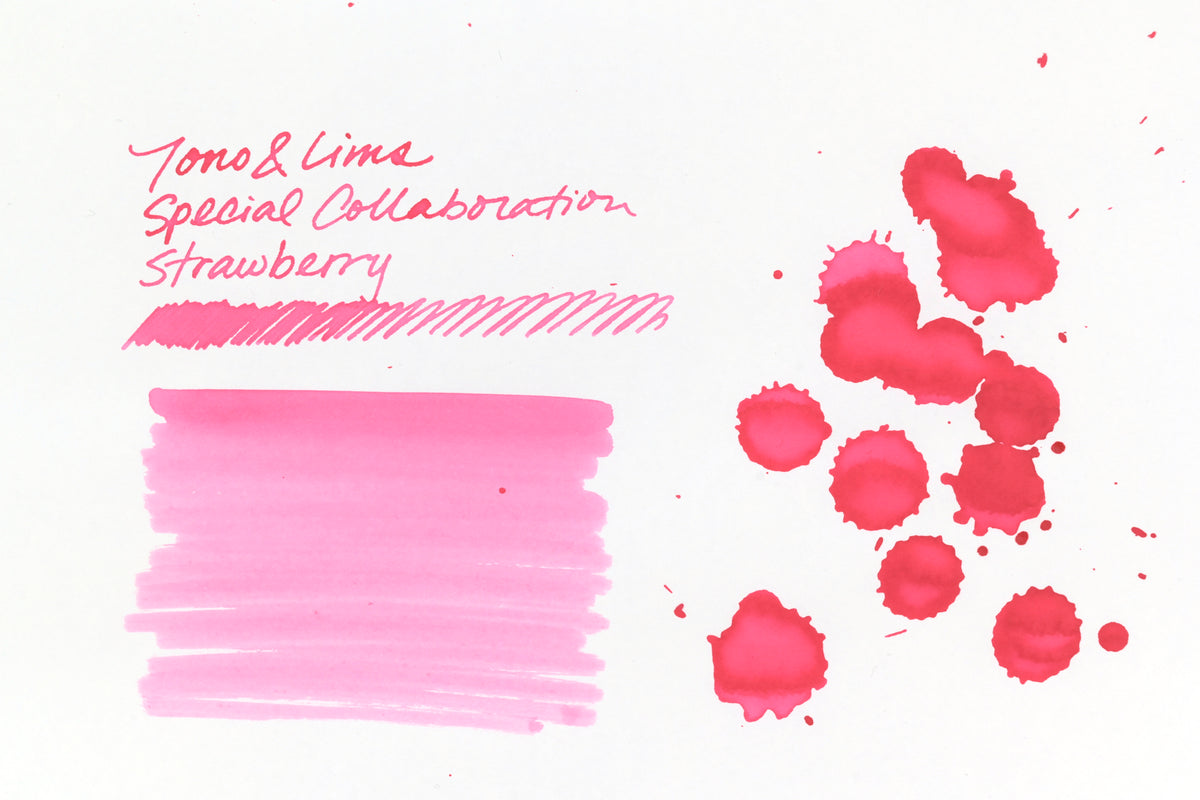 Tono & Lims
Special Collaboration
Strawberry